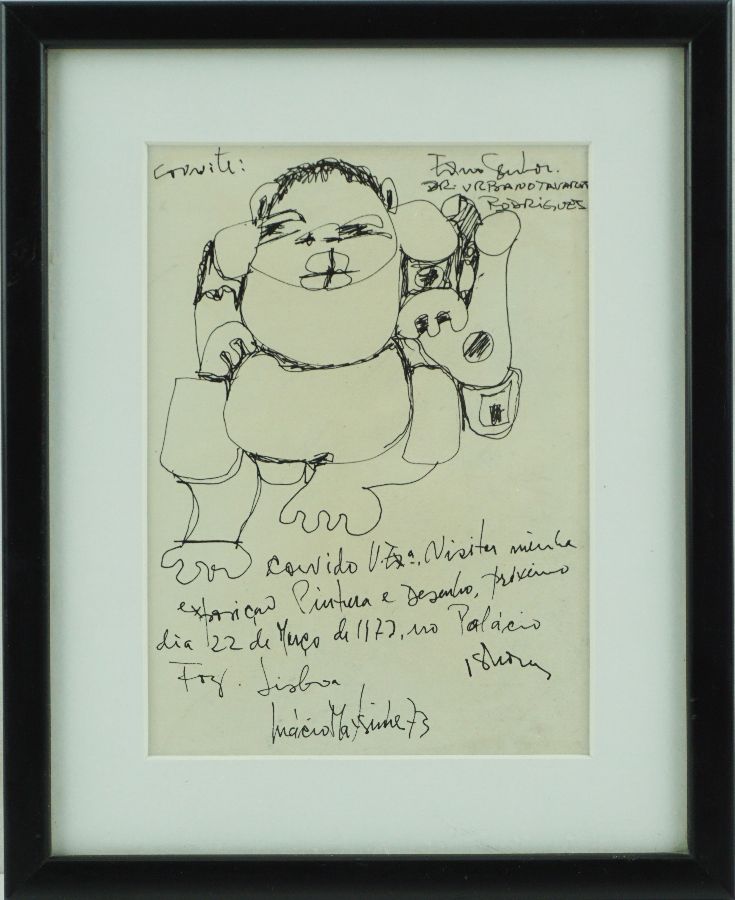 convite:
Exmo Senhor.
DR. URBANO TAVARES
RODRIGUES
convido V. Exª. Visitar minha
exposição Pintura e Desenho, próximo
dia 22 de Março de 1973, no Palácio
Foz. Lisboa 18 horas
Inácio Matsinhe 73